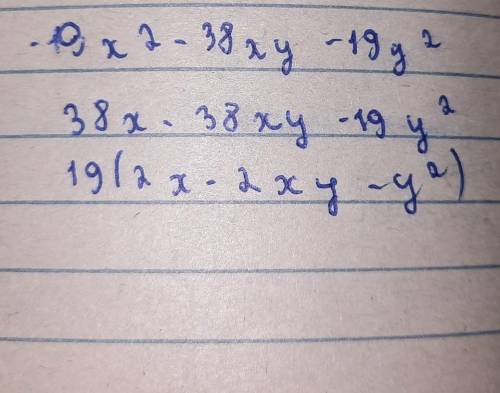 x2 - 38xy - 19y²
38x - 38xy - 19y²
19(2x - 2xy - y²)